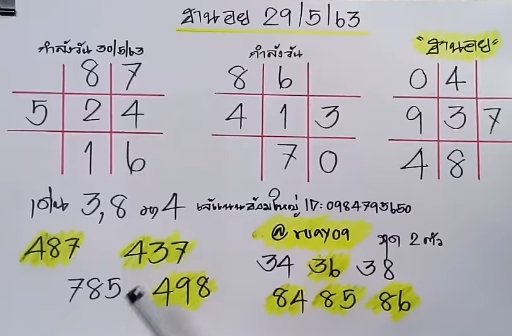 ฮานอย 29/5/63
กำลังวัน 30/5/63
กำลังวัน
"ฮานอย"
8 7
8 6
0 4
5 2 4
4 1 3
9 3 7
1 6
7 0
4 8
เด่น 3,8 4
ID: 0984795650
@ruay09
ชุด 2 ตัว
487 437
34 36 38
785 498
84 85 86